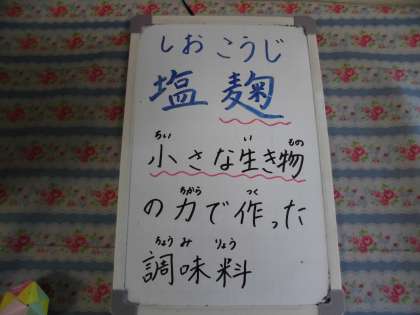 しおこうじ
塩麹
ちい い もの
小さな生き物
ちから つく
の力で作った
ちょうみりょう
調味料